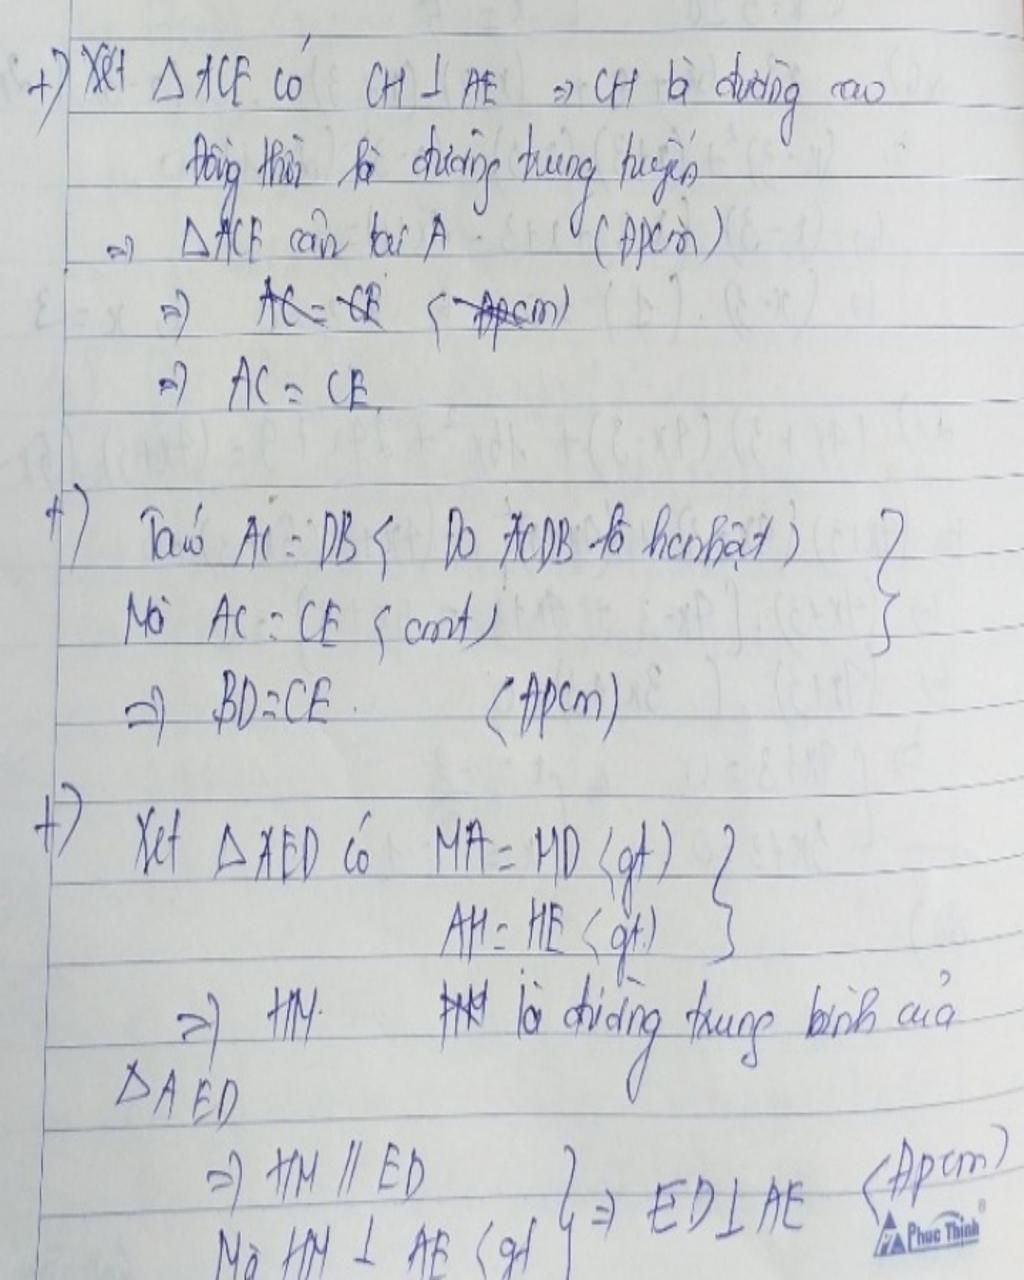 +) Xét △ACE có CH ⊥ AE => CH là đường cao
đồng thời là đường trung tuyến
=> △ACE cân tại A (Đpcm)
=> AC = CE (Đpcm)
=> AC = CE
+) Ta có AC = DB ( Do ACDB là hcnhật ) }
Mà AC = CE ( cmt )
=> BD = CE. (Đpcm)
+) Xét △AED có MA = MD (gt) }
AH = HE (gt)
=> HM. là đường trung bình của
△AED
=> HM // ED } => ED ⊥ AE (Đpcm)
Mà HM ⊥ AE (gt
Phuc Thinh®